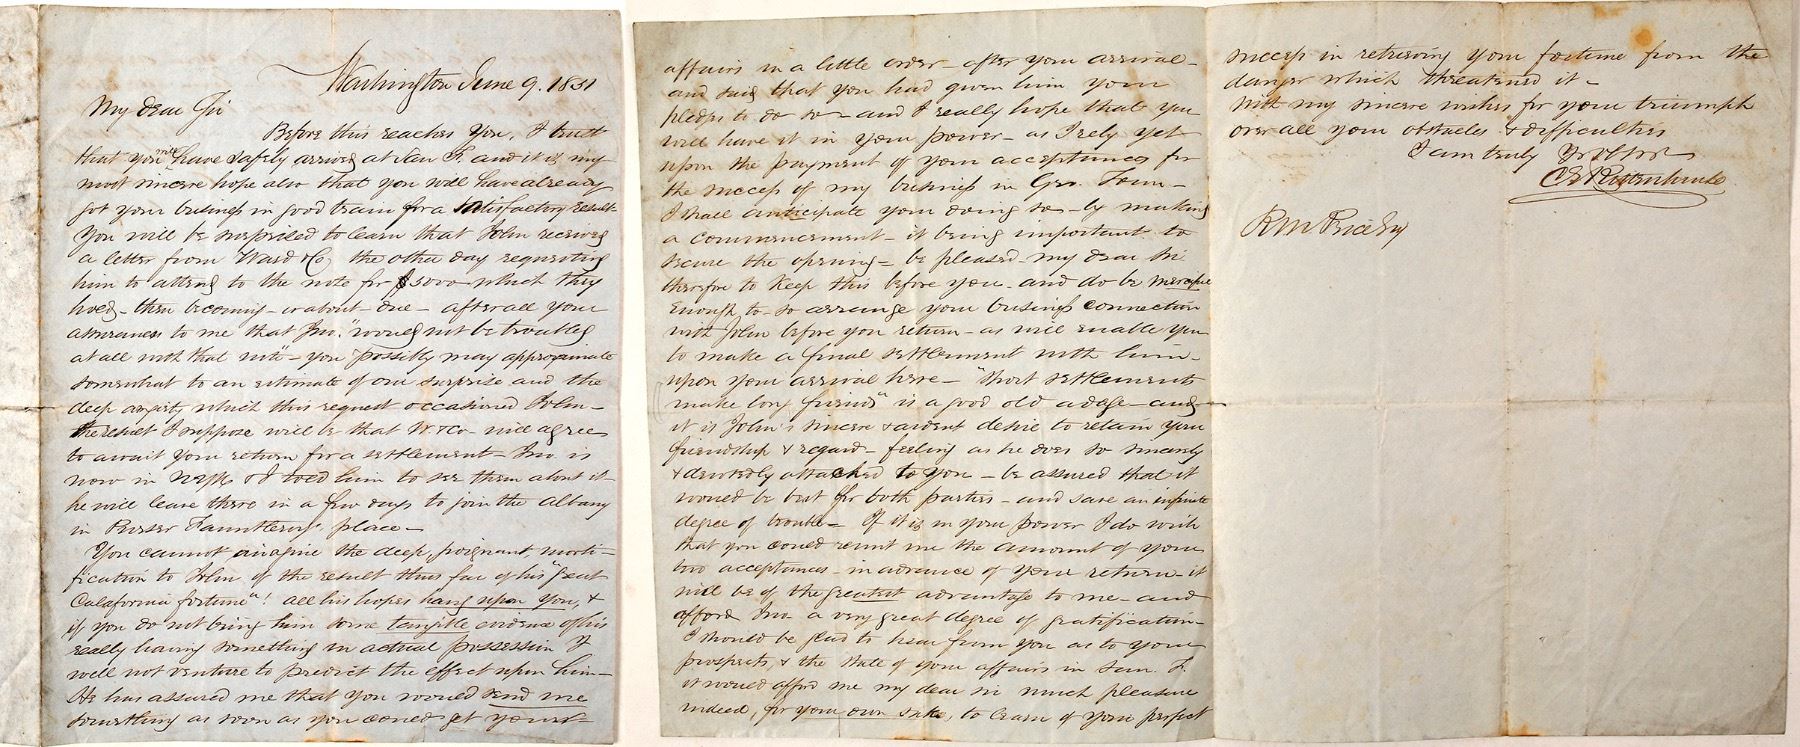 Washington June 9. 1851
My dear Sir
Before this reaches you, I trust
that you will have safely arrived at San F. and it is my
most sincere hope also that you will have already
got your business in good train for a satisfactory result
You will be surprised to learn that John received
a letter from Ward & Co, the other day requesting
him to attend to the note for $5000 which they
hold - then becoming - or about - due - after all your
assurances to me that Jno. "would not be troubled
at all with that note" - you possibly may approximate
somewhat to an estimate of our surprise and the
deep anxiety which this request occasioned John -
the result I suppose will be that W. & Co will agree
to await your return for a settlement - Jno. is
now in & I told him to see them about it -
he will leave there in a few days to join the Albany
in Purser Fauntleroy's place -
You cannot imagine the deep, poignant, morti-
fication to John of the result thus far of his "great
California fortune"! all his hopes hang upon you, &
if you do not bring him some tangible evidence of his
really having something in actual possession I
will not venture to predict the effect upon him -
He has assured me that you would send me
something as soon as you could get your
affairs in a little order - after your arrival -
and said that you had given him your
pledge to do so - and I really hope that you
will have it in your power - as I rely yet
upon the payment of your acceptances for
the success of my business in Geo. Town -
I shall anticipate your doing so - by making
a commencement - it being important to
secure the opening - be pleased my dear Sir
therefore to keep this before you - and do be merciful
enough to - so arrange your business connection
with John before you return - as will enable you
to make a final settlement with him -
upon your arrival here - "Short settlements
make long friends" is a good old adage - and
it is John's sincere & ardent desire to retain your
friendship & regard - feeling as he does so sincerely
& devotedly attached to you - be assured that it
would be best for both parties - and save an infinite
degree of trouble - If it is in your power I do wish
that you could remit me the amount of your
two acceptances - in advance of your return - it
will be of the greatest advantage to me - and
afford Jno. a very great degree of gratification -
I should be glad to hear from you as to your
prospects, & the state of your affairs in San. F.
it would afford me my dear sir much pleasure
indeed, for your own sake, to learn of your perfect
success in retrieving your fortune from the
danger which threatened it -
With my sincere wishes for your triumph
over all your obstacles & difficulties
I am truly Yr ob Svt
R M Price Esq